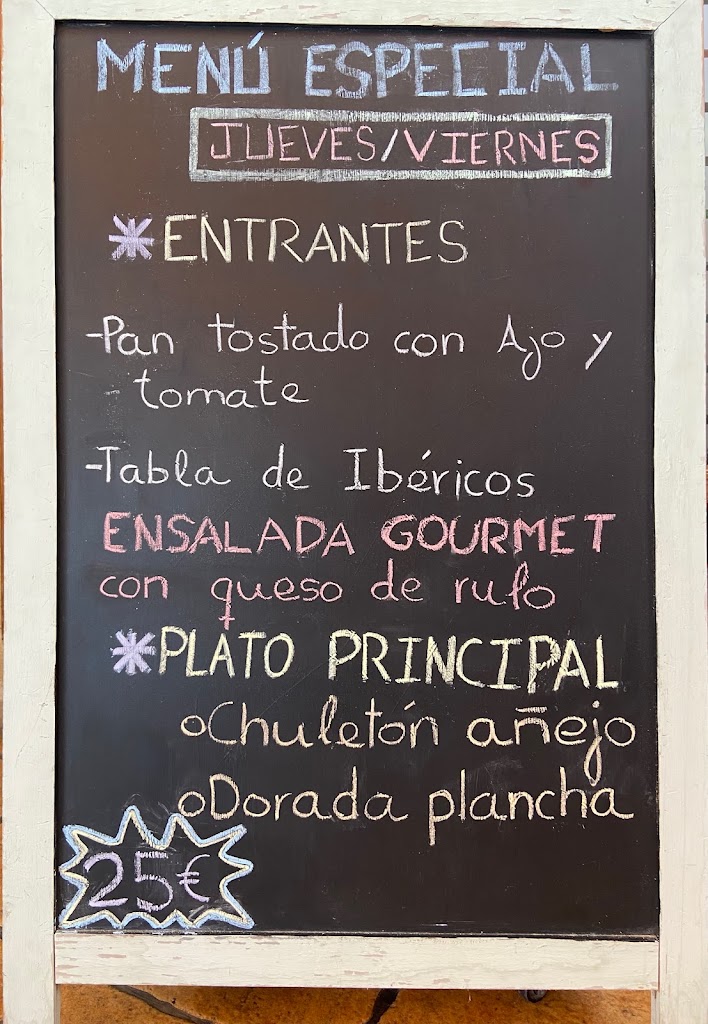 MENÚ ESPECIAL
JUEVES/VIERNES
*ENTRANTES
-Pan tostado con Ajo y
tomate
-Tabla de Ibéricos
ENSALADA GOURMET
con queso de rulo
*PLATO PRINCIPAL
oChuletón añejo
oDorada plancha
25€